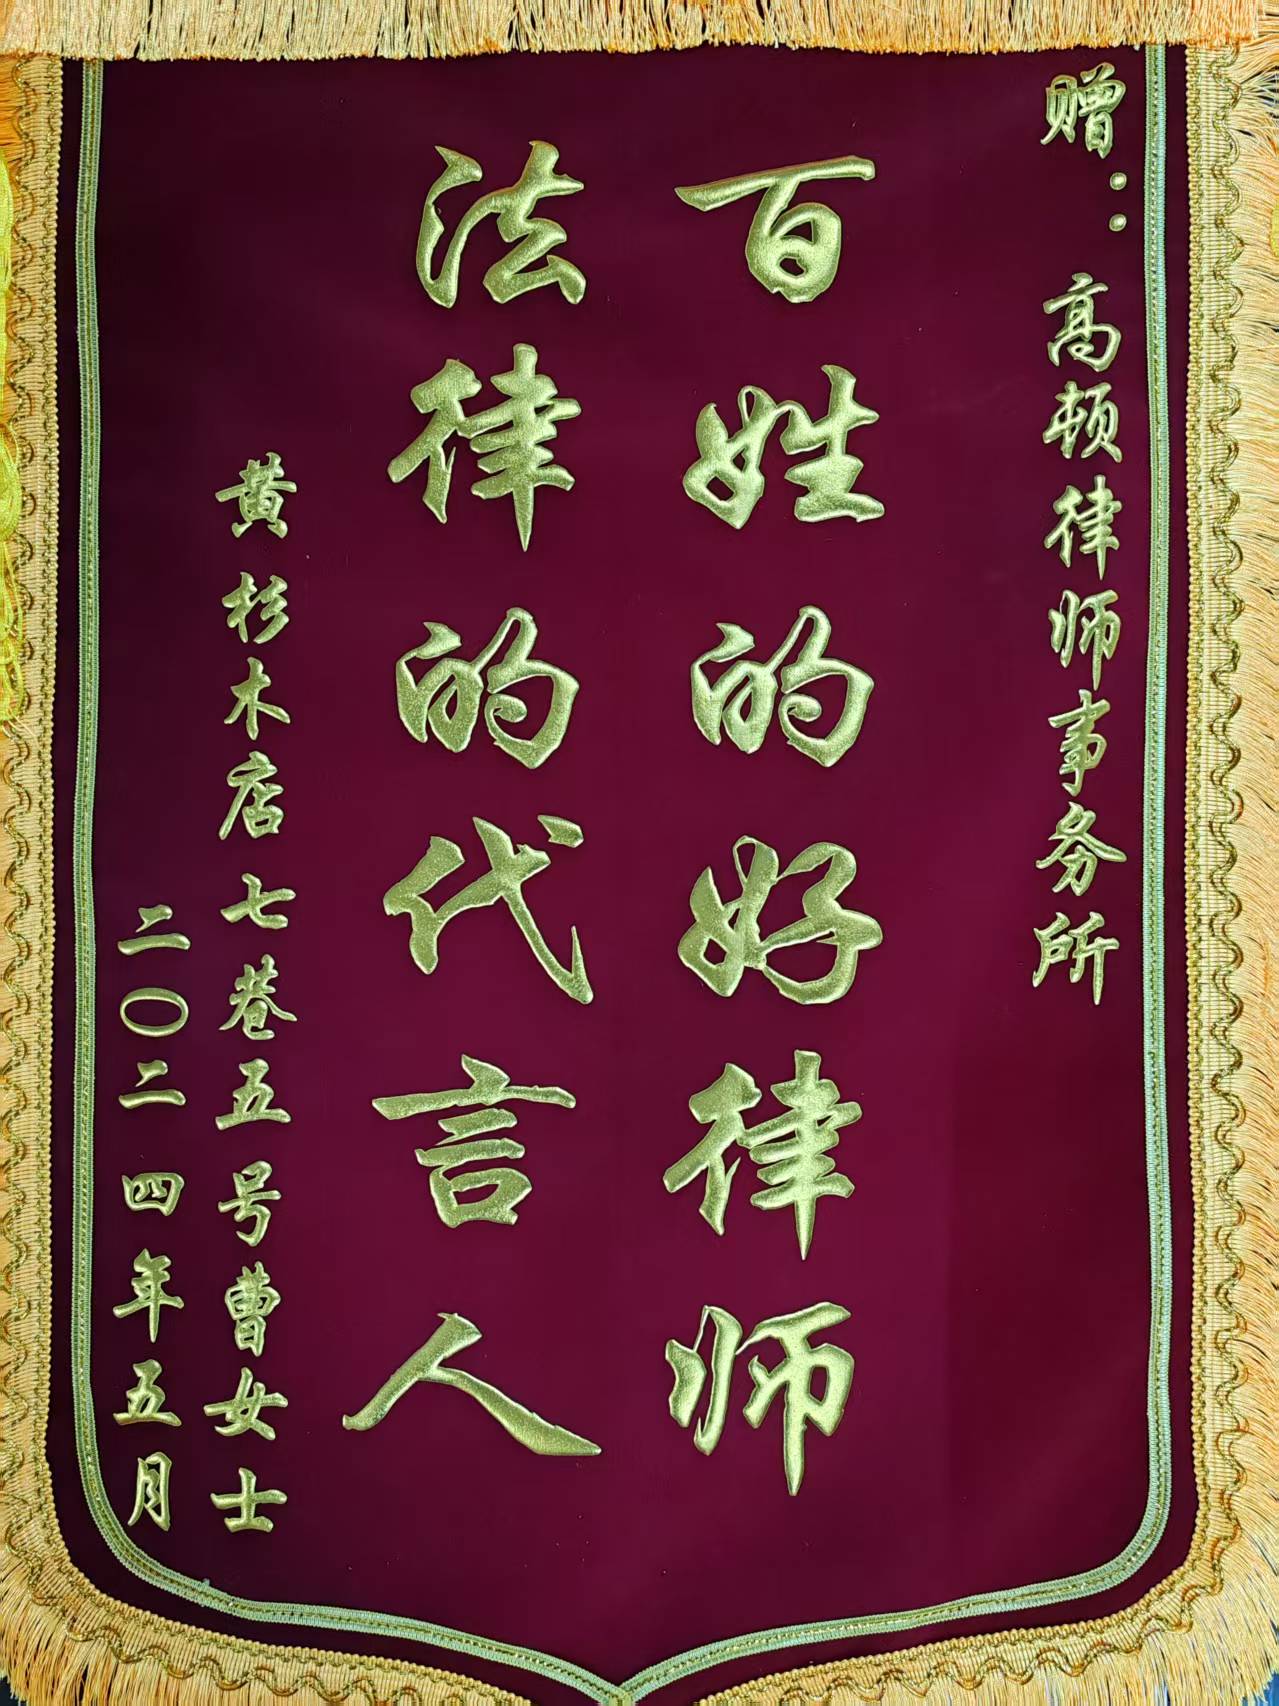 赠：高顿律师事务所
百姓的好律师
法律的代言人
黄杉木店七巷五号曹女士
二〇二四年五月